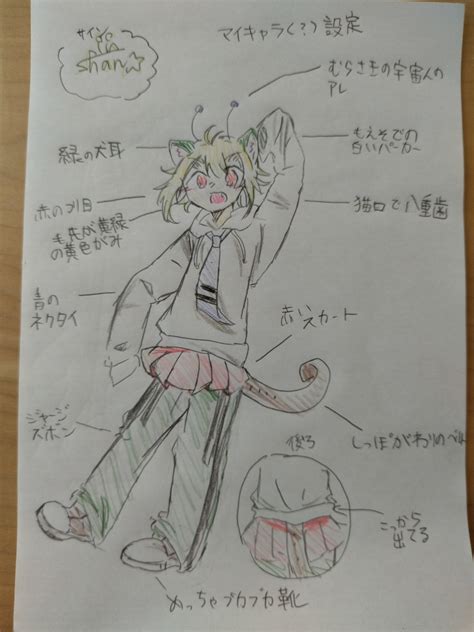 サイン
shan☆
マイキャラ(?)設定
むらさきの宇宙人の
アレ
緑の犬耳
もえそでの
白いパーカー
赤のツリ目
猫口で八重歯
毛先が黄緑
の黄色がみ
青の
ネクタイ
赤いスカート
ジャージ
ズボン
しっぽがわりのベルト
後ろ
こっから
出てる
めっちゃブカブカ靴